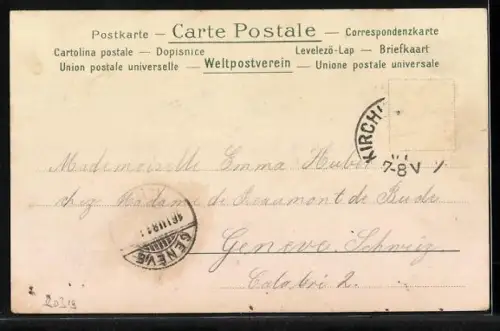 Postkarte — Carte Postale — Correspondenzkarte
Cartolina postale — Dopisnice Levelező-Lap — Briefkaart
Union postale universelle — Weltpostverein — Unione postale universale
KIRCH
7-8 V
Mademoiselle Emma Huber
chez Madame de Beaumont de Bude
GENÈVE
Genève. Schweiz
Colabri 2.